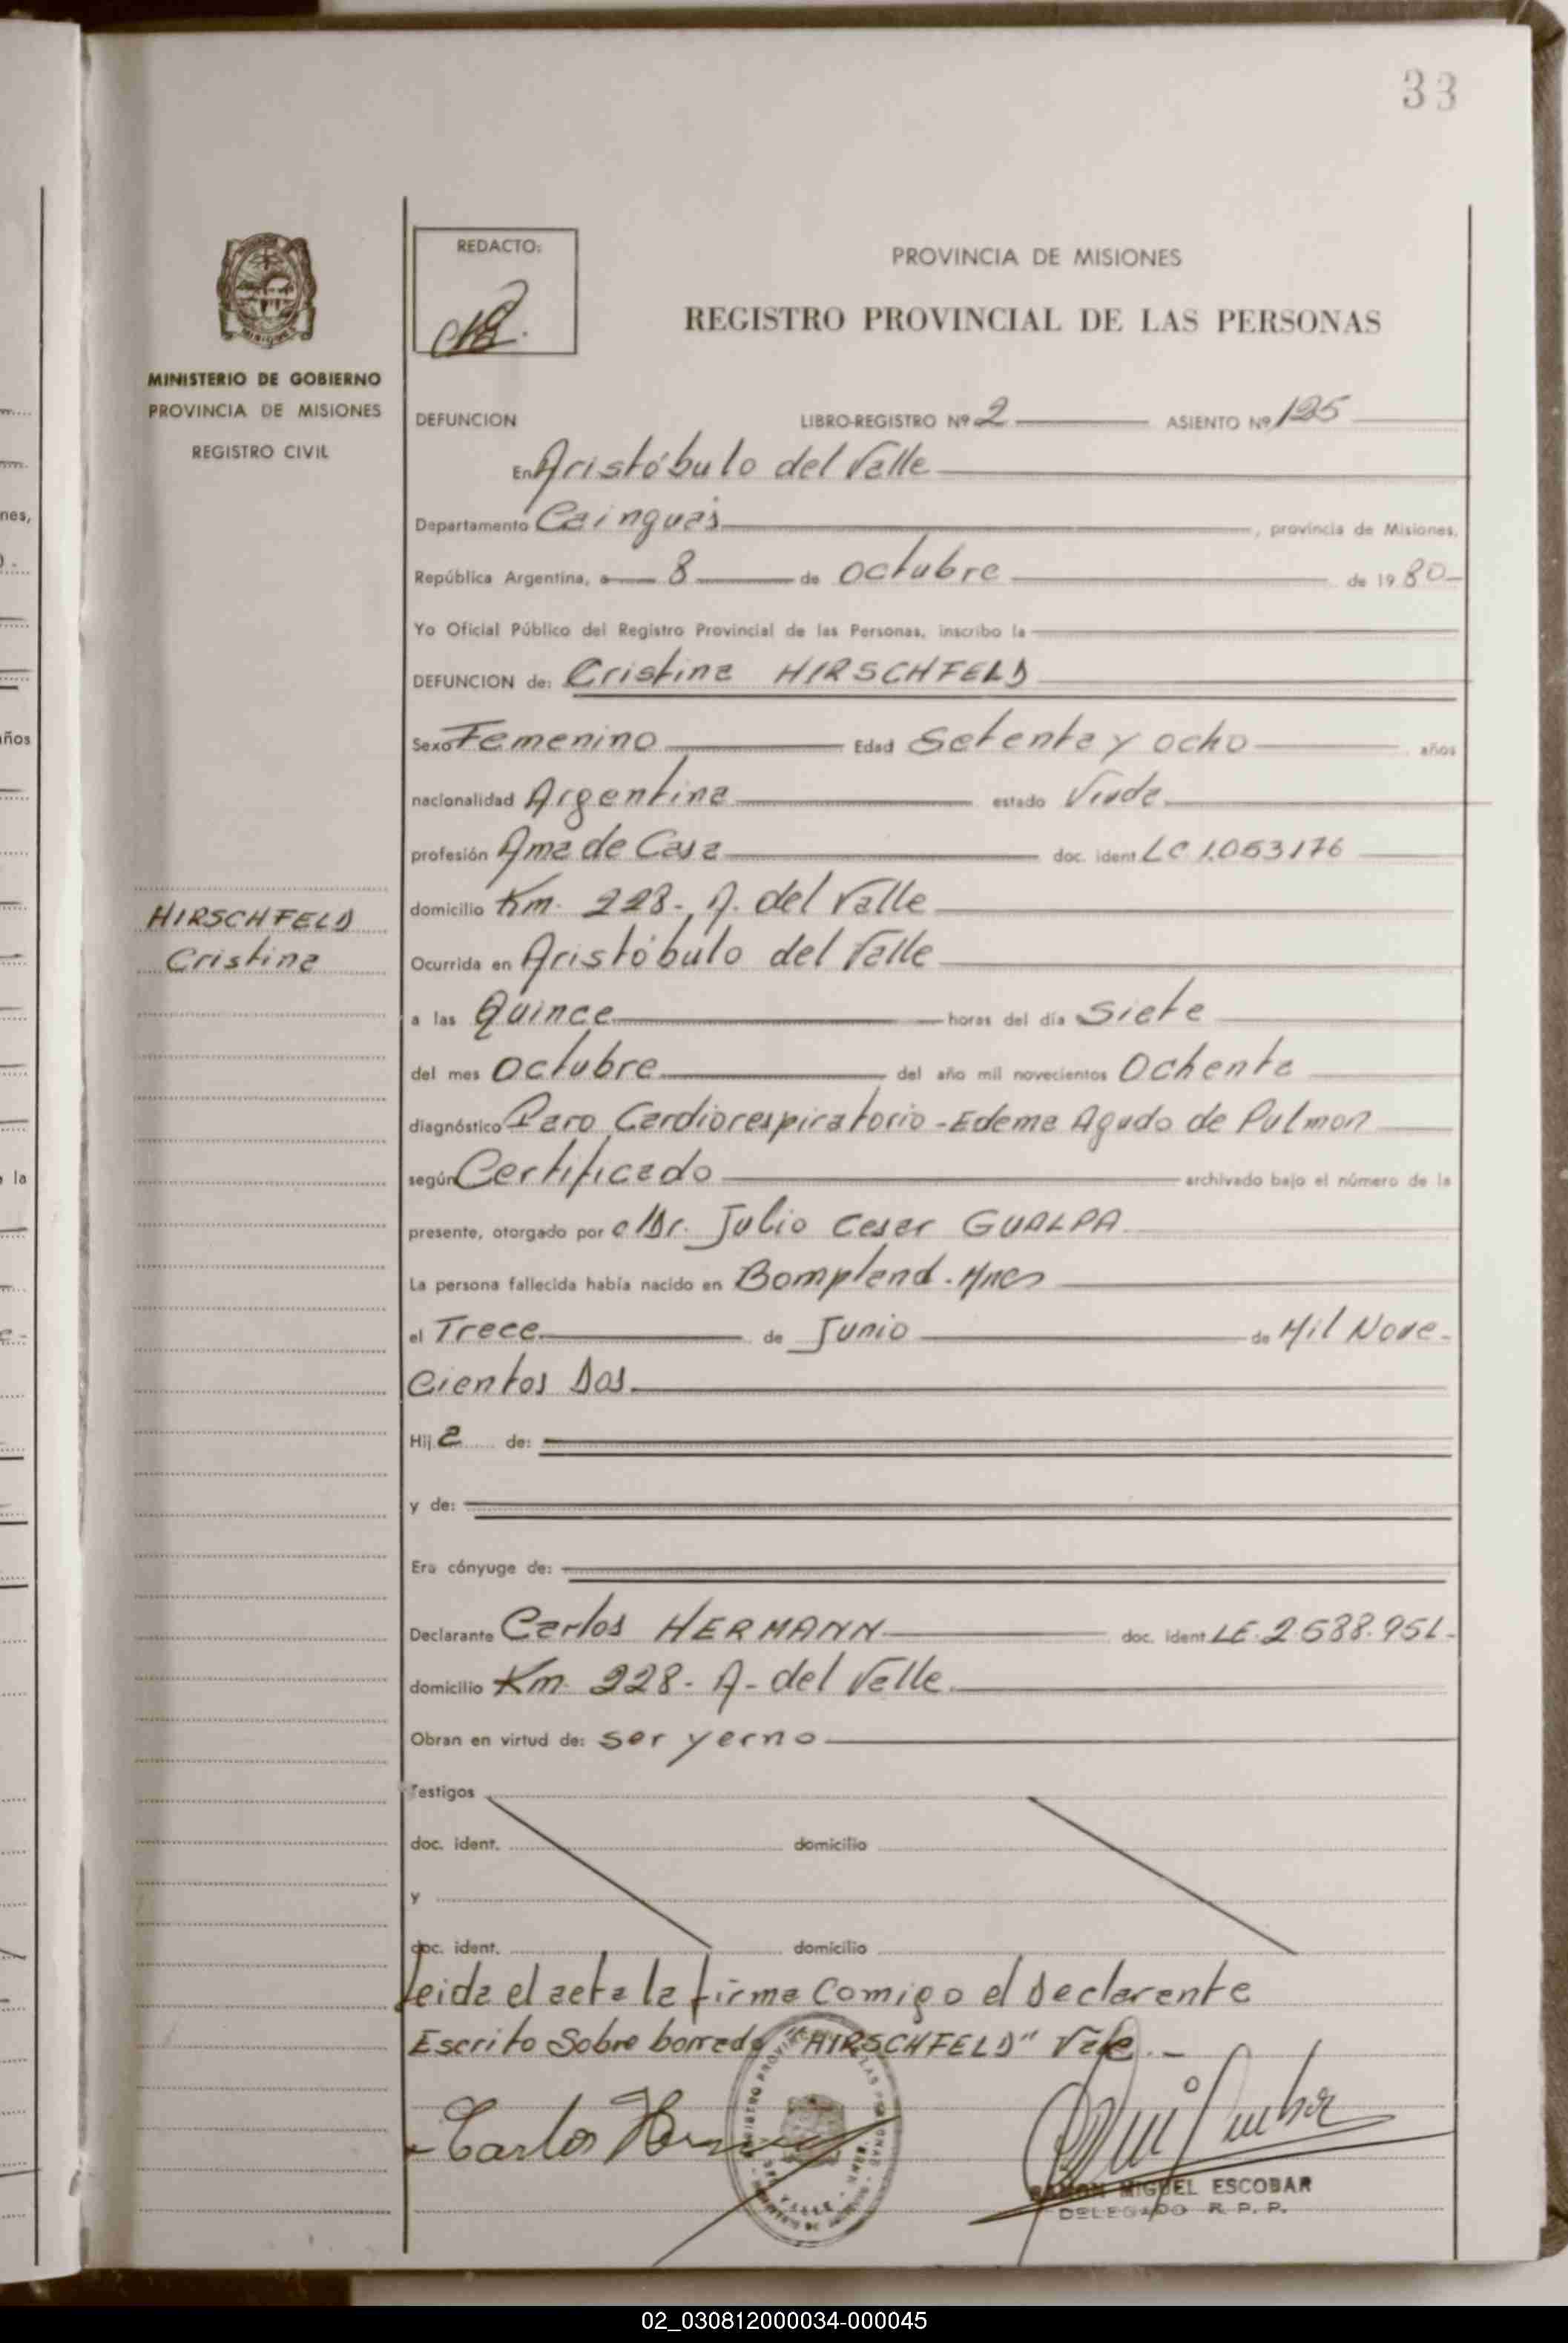 33
REDACTO:
PROVINCIA DE MISIONES
REGISTRO PROVINCIAL DE LAS PERSONAS
MINISTERIO DE GOBIERNO
PROVINCIA DE MISIONES
REGISTRO CIVIL
DEFUNCION LIBRO-REGISTRO Nº 2 ASIENTO Nº 125
En Aristóbulo del Valle
Departamento Cainguás, provincia de Misiones,
República Argentina, a 8 de octubre de 1980
Yo Oficial Público del Registro Provincial de las Personas, inscribo la
DEFUNCION de: Cristina HIRSCHFELD
Sexo Femenino Edad Setenta y ocho años
nacionalidad Argentina estado Viuda
profesión Ama de Casa doc. ident. LC 1.053176
HIRSCHFELD
Cristina
domicilio Km. 228-, A. del Valle
Ocurrida en Aristóbulo del Valle
a las Quince horas del día Siete
del mes Octubre del año mil novecientos Ochenta
diagnóstico Paro Cardiorespiratorio - Edema Agudo de Pulmon
según Certificado archivado bajo el número de la
presente, otorgado por el Dr. Julio Cesar GUALPA
La persona fallecida había nacido en Bompland. Mnes
el Trece de Junio de Mil Nove-
cientos Dos.
Hija de:
y de:
Era cónyuge de:
Declarante Carlos HERMANN doc. ident. LE. 2.588.951-
domicilio Km. 228- A- del Valle.
Obran en virtud de: ser yerno
Testigos
doc. ident. domicilio
y
doc. ident. domicilio
Leida el acta la firma Comigo el Declarante
Escrito Sobre borrado "HIRSCHFELD" Vale.-
Carlos
RAMON MIGUEL ESCOBAR
DELEGADO R. P. P.
02_030812000034-000045